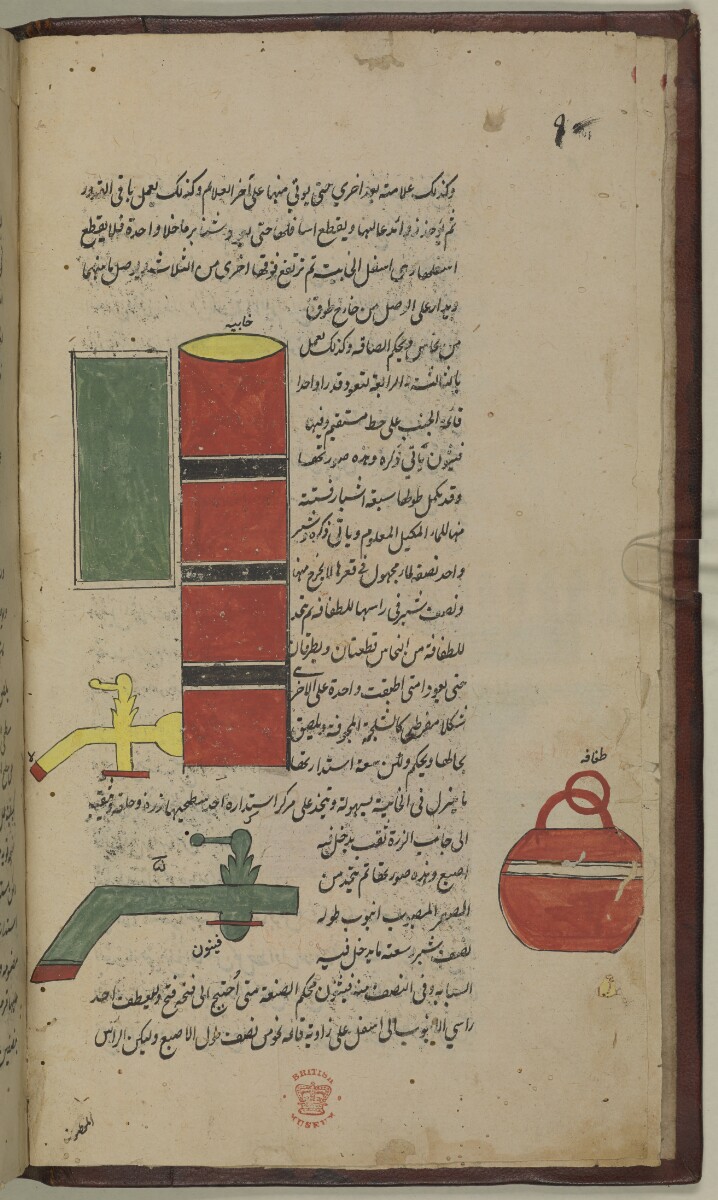 وكذلك علامته بعد اخري حتى يوتي منها على آخر العلائم وكذلك يعمل باقي القدور
ثم يوخذ زوائد عاليها ويقطع اسافلها حتى يعود شفا برما خلا واحدة فلا يقطع
اسفلها وهي اسفل الخابية ثم ترفع فوقها اخرى من الثلاثة ويوصل ما بينهما
ويدار على الوصل من خارج طوق
خابيه
من نحاس ويحكم الصاقه وكذلك يعمل
بالثالثة والرابعة لتعود قدرا واحدا
قائمة الجنب على خط مستقيم وفيها
فيثون يأتي ذكره وهذه صورتها
وقد يكمل طولها سبعة اشبار فستة
منها للماء المكيل المعلوم وياتي ذكره وشبر
واحد نصفه لماء مجهول في قعرها لا يخرج منها
ونصف شبر في راسها للطفافه ثم يتخذ
للطفافة من النحاس قطعتان ويطرقان
حتى يعودا متى اطبقت واحدة على الاخرى
شكلا مفرطحا كالشلجمة المجوفة ويلصق
بحالها ويحكم ولتكن سعة استدارتها
طفافه
ما ينزل في الخابية بسهولة ويتخذ على مركز استدارة احد سطحيها زرة وحلقة وثيقة
الى جانب الزرة ثقب يدخل فيه
اصبع وهذه صورتها ثم يتخذ من
الصفر المصبوب انبوب طوله
فيثون
نصف شبر وسعته ما يدخل فيه
السبابة وفي النصف منه فيثون محكم الصنعة متى أحتيج الى فتحه فتح وليعطف احد
راسي الانبوب الى اسفل على زاوية قائمة نحو من نصف طول الاصبع وليكن الراس
BRITISH MUSEUM